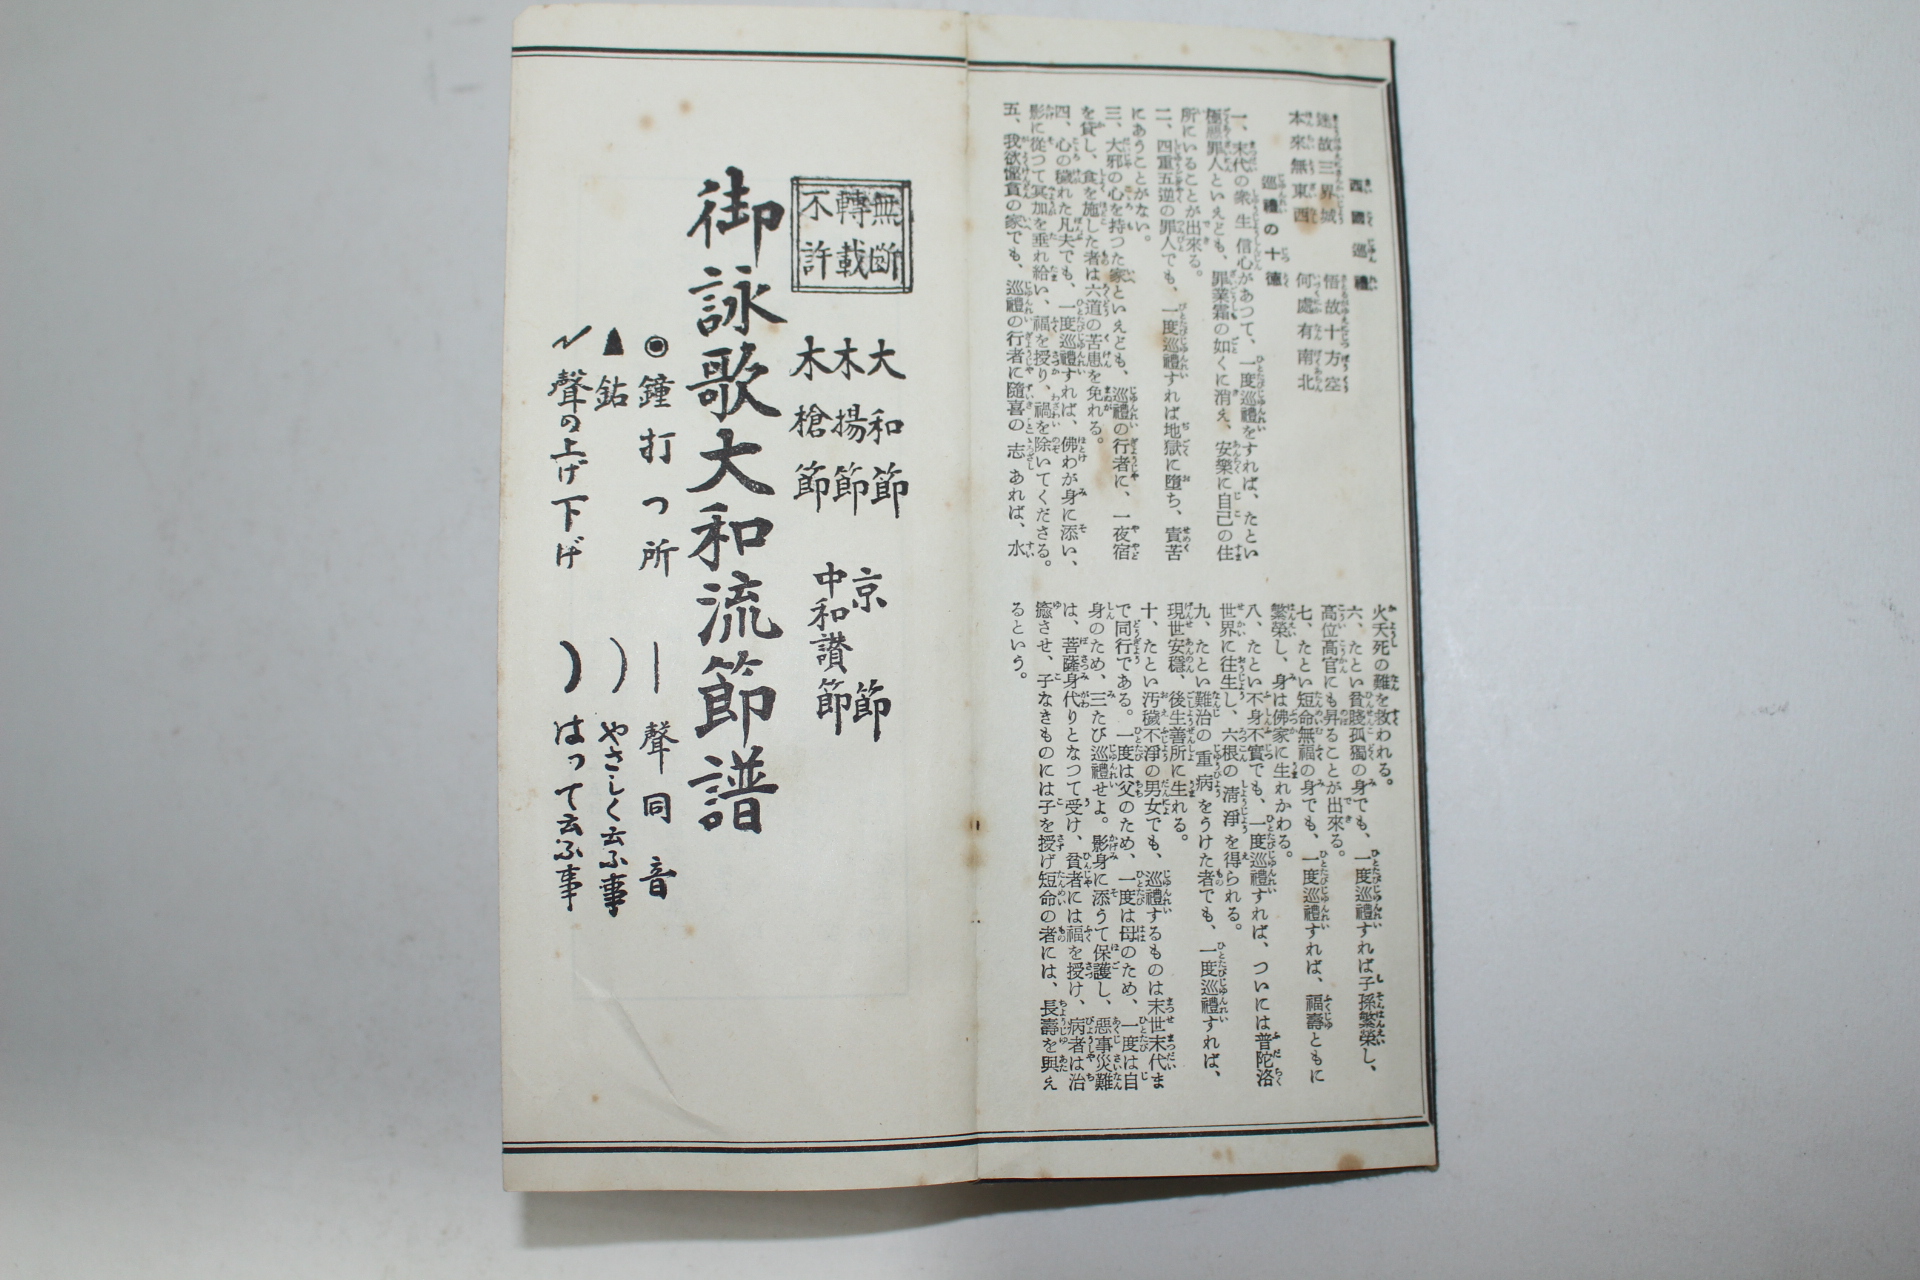 西國巡禮
迷故三界城　悟故十方空
本來無東西　何處有南北
巡禮の十德
一、末代の衆生信心があつて、一度巡禮をすれば、たとい
極悪罪人といえども、罪業霜の如くに消え、安樂に自己の住
所にいることが出來る。
二、四重五逆の罪人でも、一度巡禮すれば地獄に墮ち、責苦
にあうことがない。
三、大邪の心を持つた家といえども、巡禮の行者に、一夜宿
を貸し、食を施した者は六道の苦患を免れる。
四、心の穢れた凡夫でも、一度巡禮すれば、佛わが身に添い、
影に從つて冥加を垂れ給い、福を授り、禍を除いてくださる。
五、我欲慳貪の家でも、巡禮の行者に隨喜の志あれば、水
火夭死の難を救われる。
六、たとい貧賤孤獨の身でも、一度巡禮すれば子孫繁榮し、
高位高官にも昇ることが出來る。
七、たとい短命無福の身でも、一度巡禮すれば、福壽ともに
繁榮し、身は佛家に生れかわる。
八、たとい不身不實でも、一度巡禮すれば、ついには普陀洛
世界に往生し、六根の清淨を得られる。
九、たとい難治の重病をうけた者でも、一度巡禮すれば、
現世安穩、後生善所に生れる。
十、たとい汚穢不淨の男女でも、巡禮するものは末世末代ま
で同行である。一度は父のため、一度は母のため、一度は自
身のため、三たび巡禮せよ。影身に添うて保護し、惡事災難
は、菩薩身代りとなつて受け、貧者には福を授け、病者は治
癒させ、子なきものには子を授げ短命の者には、長壽を興え
るという。
無斷
轉載
不許
大和節　京節
木揚節　中和讃節
木槍節
御詠歌大和流節譜
◉鐘打つ所　｜聲同音
▲鉆　）やさしく云ふ事
聲の上げ下げ　）はって云ふ事